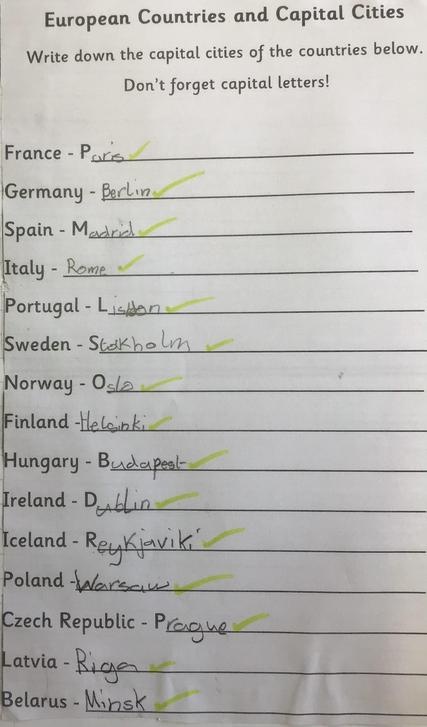 European Countries and Capital Cities
Write down the capital cities of the countries below.
Don't forget capital letters!
France - Paris
Germany - Berlin
Spain - Madrid
Italy - Rome
Portugal - Lisbon
Sweden - Stokholm
Norway - Oslo
Finland - Helsinki
Hungary - Budapest
Ireland - Dublin
Iceland - Reykjaviki
Poland - Warsaw
Czech Republic - Prague
Latvia - Riga
Belarus - Minsk